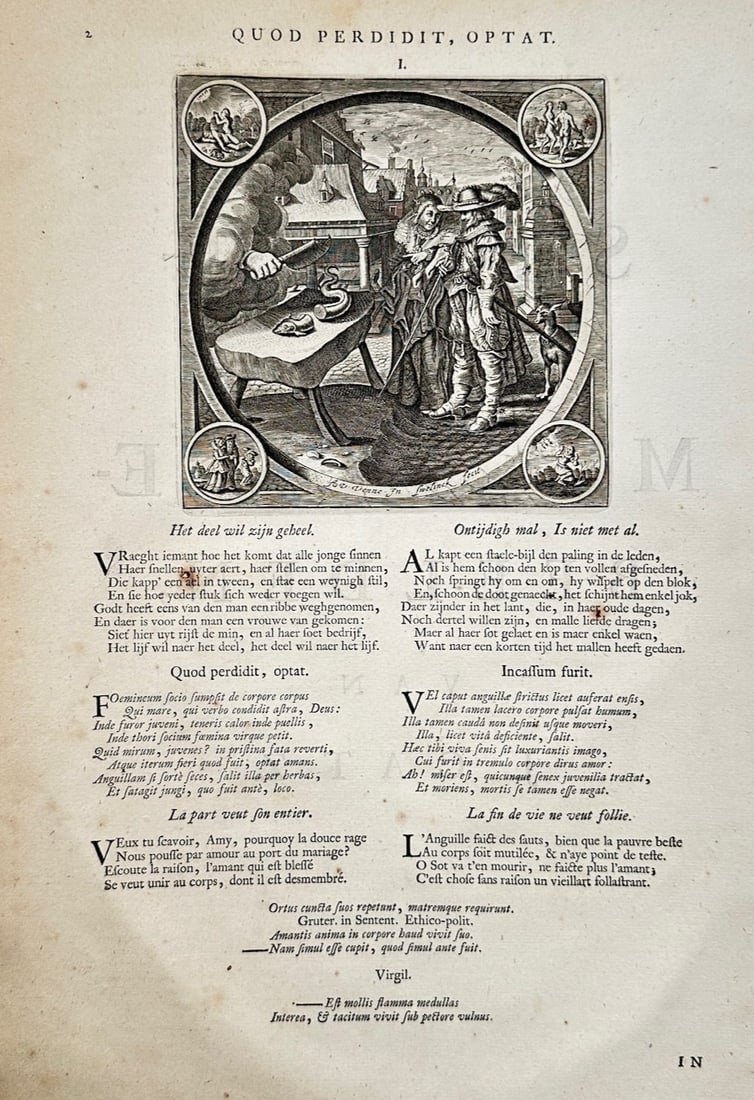 2
QUOD PERDIDIT, OPTAT.
I.
Het deel wil zijn geheel.
VRaeght iemant hoe het komt dat alle jonge sinnen
Haer snellen uyter aert, haer stellen om te minnen,
Die kapp' een ael in tween, en stae een weynigh stil,
En sie hoe yeder stuk sich weder voegen wil.
Godt heeft eens van den man een ribbe weghgenomen,
En daer is voor den man een vrouwe van gekomen:
Sief hier uyt rijst de min, en al haer soet bedrijf,
Het lijf wil naer het deel, het deel wil naer het lijf.
Quod perdidit, optat.
FOemineum socio sumpsit de corpore corpus
Qui mare, qui verbo condidit astra, Deus:
Inde furor juveni, teneris calor inde puellis,
Inde thori socium fæmina virque petit.
Quid mirum, juvenes? in pristina fata reverti,
Atque iterum fieri quod fuit, optat amans.
Anguillam si fortè seces, salit illa per herbas,
Et satagit jungi, quo fuit antè, loco.
La part veut son entier.
VEux tu scavoir, Amy, pourquoy la douce rage
Nous pousse par amour au port du mariage?
Escoute la raison, l'amant qui est blessé
Se veut unir au corps, dont il est desmembré.
Ontijdigh mal, Is niet met al.
AL kapt een staele-bijl den paling in de leden,
Al is hem schoon den kop ten vollen afgesneden,
Noch springt hy om en om, hy wispelt op den blok,
En, schoon de doot genaeckt, het schijnt hem enkel jok,
Daer zijnder in het lant, die, in haer oude dagen,
Noch dertel willen zijn, en malle liefde dragen;
Maer al haer sot gelaet en is maer enkel waen,
Want naer een korten tijd het mallen heeft gedaen.
Incassum furit.
VEl caput anguillæ strictus licet auferat ensis,
Illa tamen lacero corpore pulsat humum,
Illa tamen caudâ non definit usque moveri,
Illa, licet vitâ deficiente, salit.
Hæc tibi viva senis sit luxuriantis imago,
Cui furit in tremulo corpore dirus amor:
Ah! miser est, quicunque senex juvenilia tractat,
Et moriens, mortis se tamen esse negat.
La fin de vie ne veut follie.
L'Anguille faict des sauts, bien que la pauvre beste
Au corps soit mutilée, & n'aye point de teste.
O Sot va t'en mourir, ne faicte plus l'amant;
C'est chose sans raison un vieillart follastrant.
Ortus cuncta suos repetunt, matremque requirunt.
Gruter. in Sentent. Ethico-polit.
Amantis anima in corpore haud vivit suo.
—Nam simul esse cupit, quod simul ante fuit.
Virgil.
—Est mollis flamma medullas
Interea, & tacitum vivit sub pectore vulnus.
IN